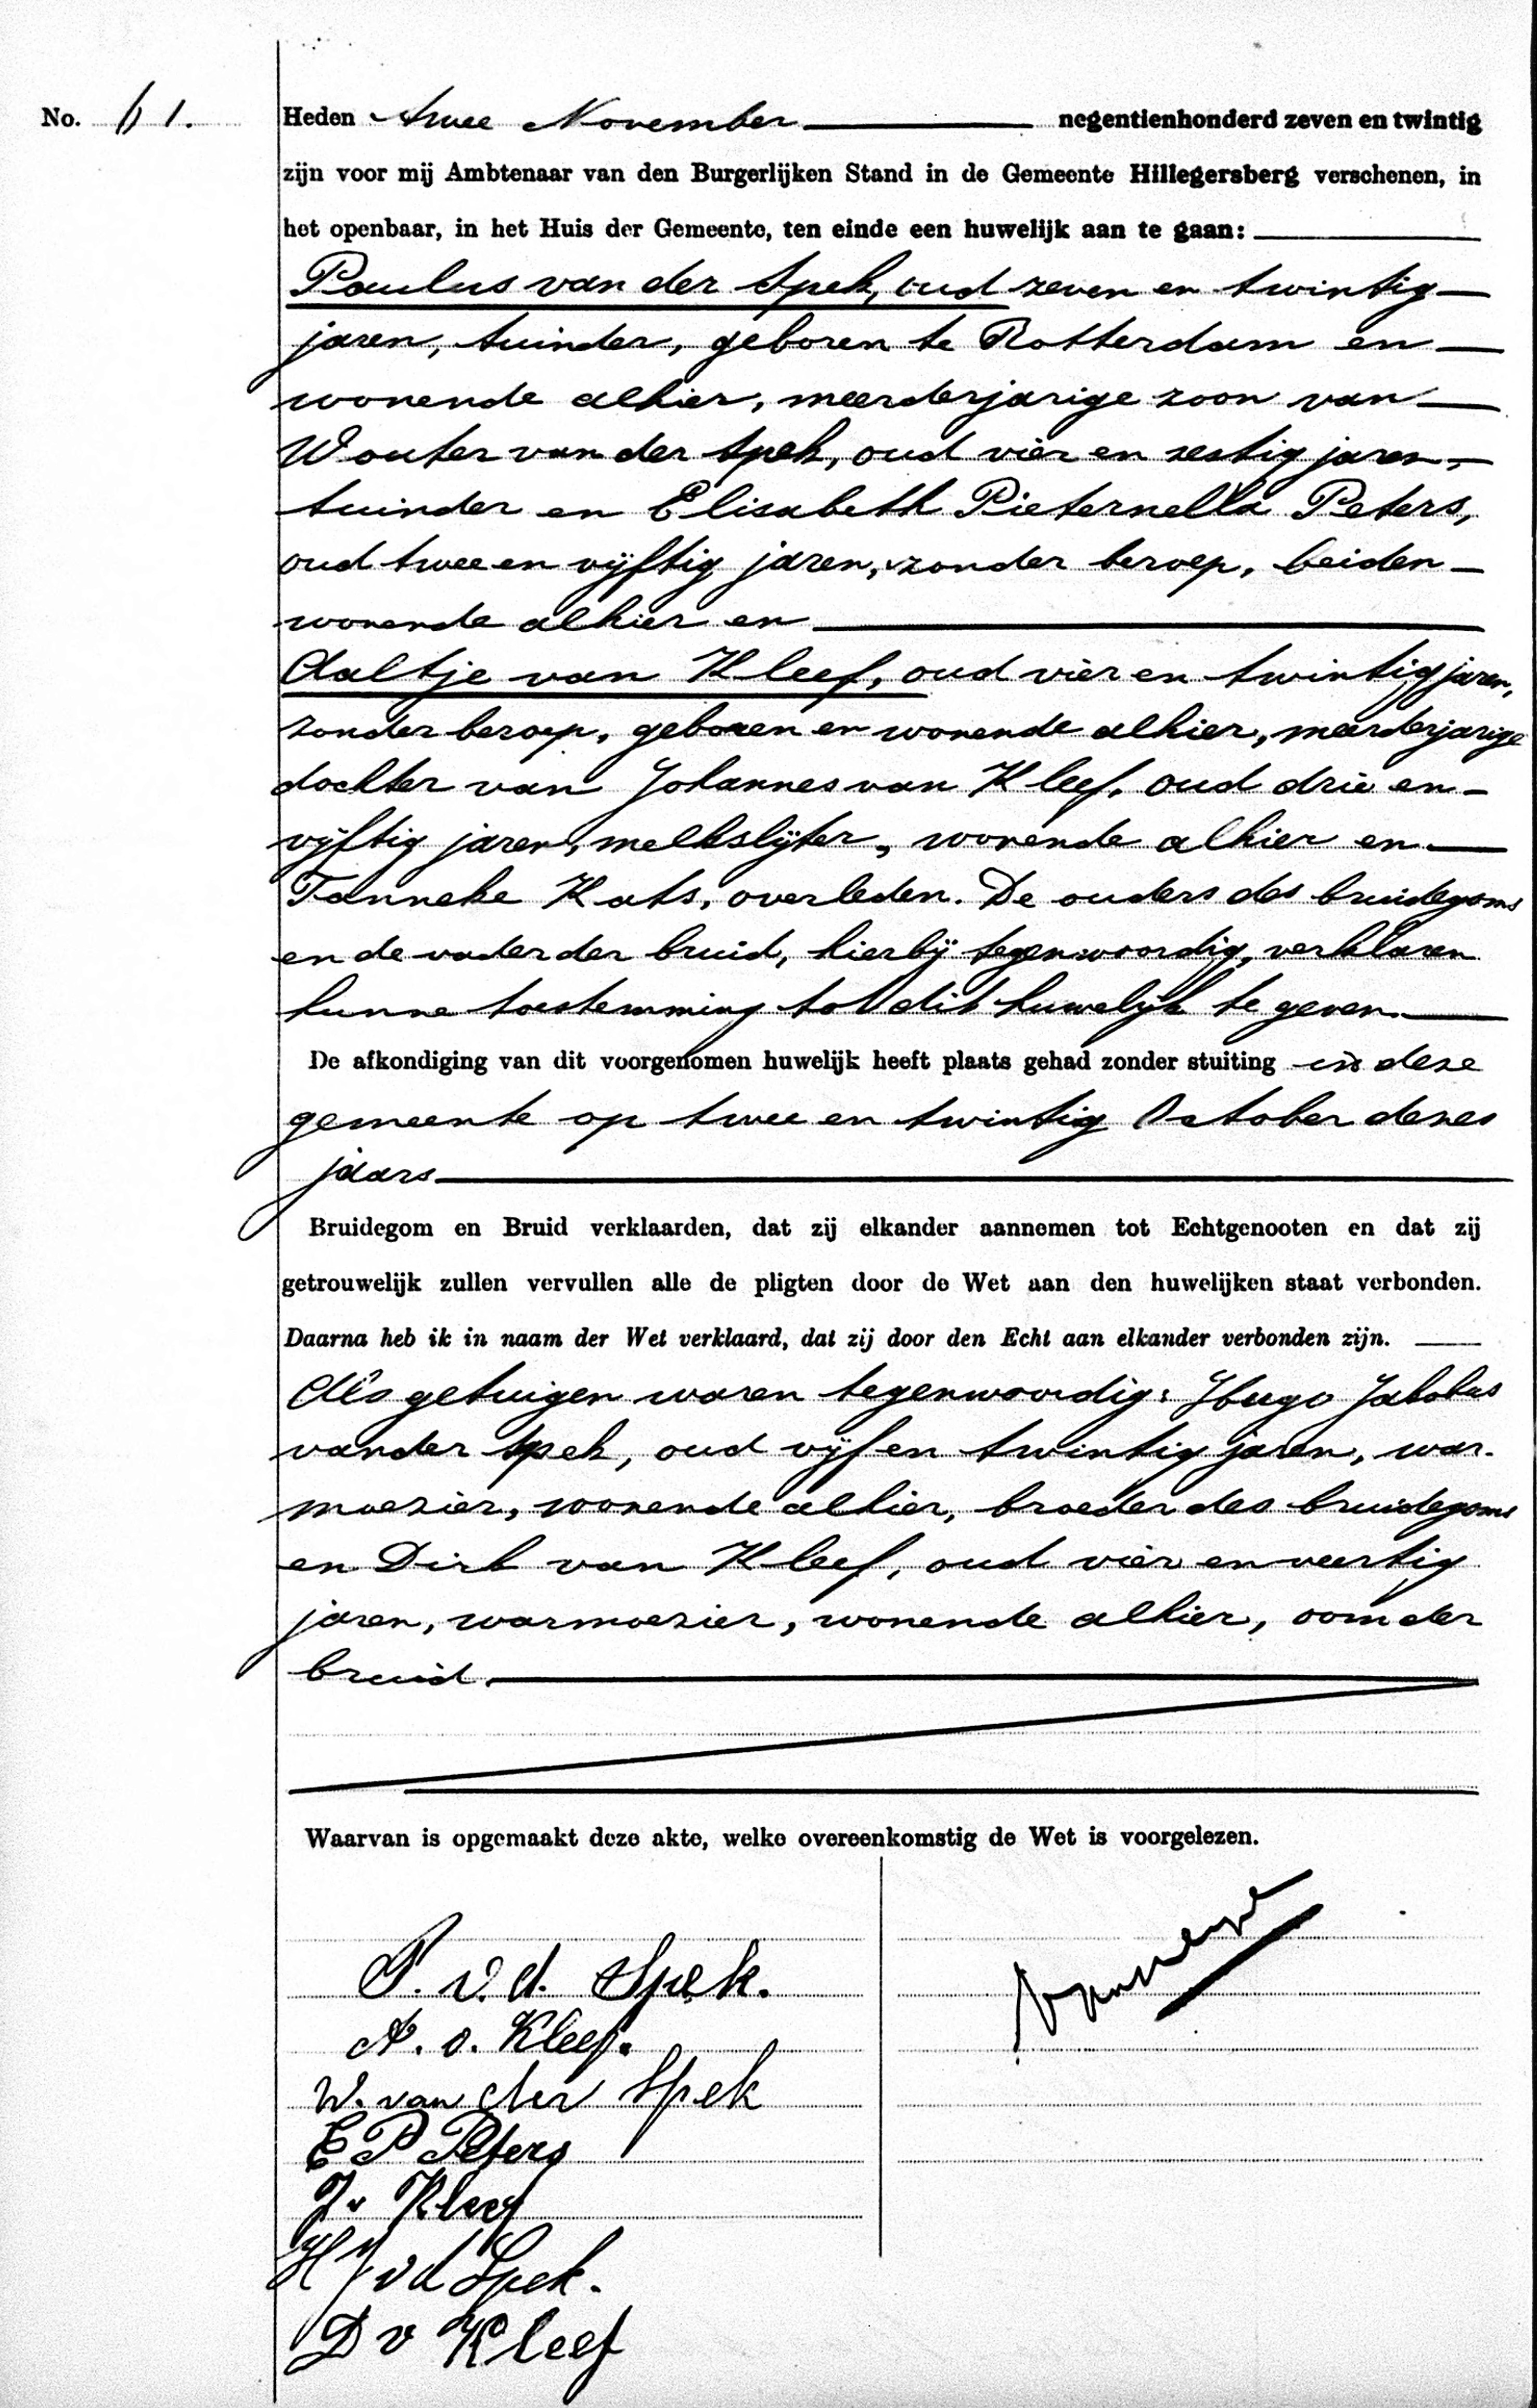 No. 61.
Heden twee November negentienhonderd zeven en twintig
zijn voor mij Ambtenaar van den Burgerlijken Stand in de Gemeente Hillegersberg verschenen, in
het openbaar, in het Huis der Gemeente, ten einde een huwelijk aan te gaan:
Paulus van der Spek, oud zeven en twintig
jaren, tuinder, geboren te Rotterdam en
wonende alhier, meerderjarige zoon van
Wouter van der Spek, oud vier en zestig jaren,
tuinder en Elisabeth Pieternella Peters,
oud twee en vijftig jaren, zonder beroep, beiden
wonende alhier en
Aaltje van Kleef, oud vier en twintig jaren,
zonder beroep, geboren en wonende alhier, meerderjarige
dochter van Johannes van Kleef, oud drie en
vijftig jaren, melkslijter, wonende alhier en
Tanneke Kats, overleden. De ouders des bruidegoms
en de vader der bruid, hierbij tegenwoordig, verklaren
hunne toestemming tot dit huwelijk te geven.
De afkondiging van dit voorgenomen huwelijk heeft plaats gehad zonder stuiting in deze
gemeente op twee en twintig October dezes
jaars
Bruidegom en Bruid verklaarden, dat zij elkander aannemen tot Echtgenooten en dat zij
getrouwelijk zullen vervullen alle de pligten door de Wet aan den huwelijken staat verbonden.
Daarna heb ik in naam der Wet verklaard, dat zij door den Echt aan elkander verbonden zijn.
Als getuigen waren tegenwoordig: Hugo Jakobus
van der Spek, oud vijf en twintig jaren, war-
moezier, wonende alhier, broeder des bruidegoms
en Dirk van Kleef, oud vier en veertig
jaren, warmoezier, wonende alhier, oom der
bruid.
Waarvan is opgemaakt deze akte, welke overeenkomstig de Wet is voorgelezen.
P. v.d. Spek.
A. v. Kleef.
W. van der Spek
E P Peters
J. v Kleef
H J v d Spek.
D v Kleef